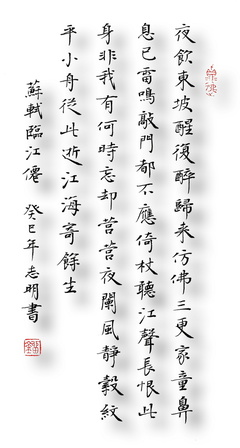 夜飲東坡醒復醉歸来仿佛三更家童鼻
息已雷鳴敲門都不應倚杖聽江聲長恨此
身非我有何時忘却營營夜闌風靜縠紋
平小舟從此逝江海寄餘生
蘇軾臨江僊 癸巳年志明書